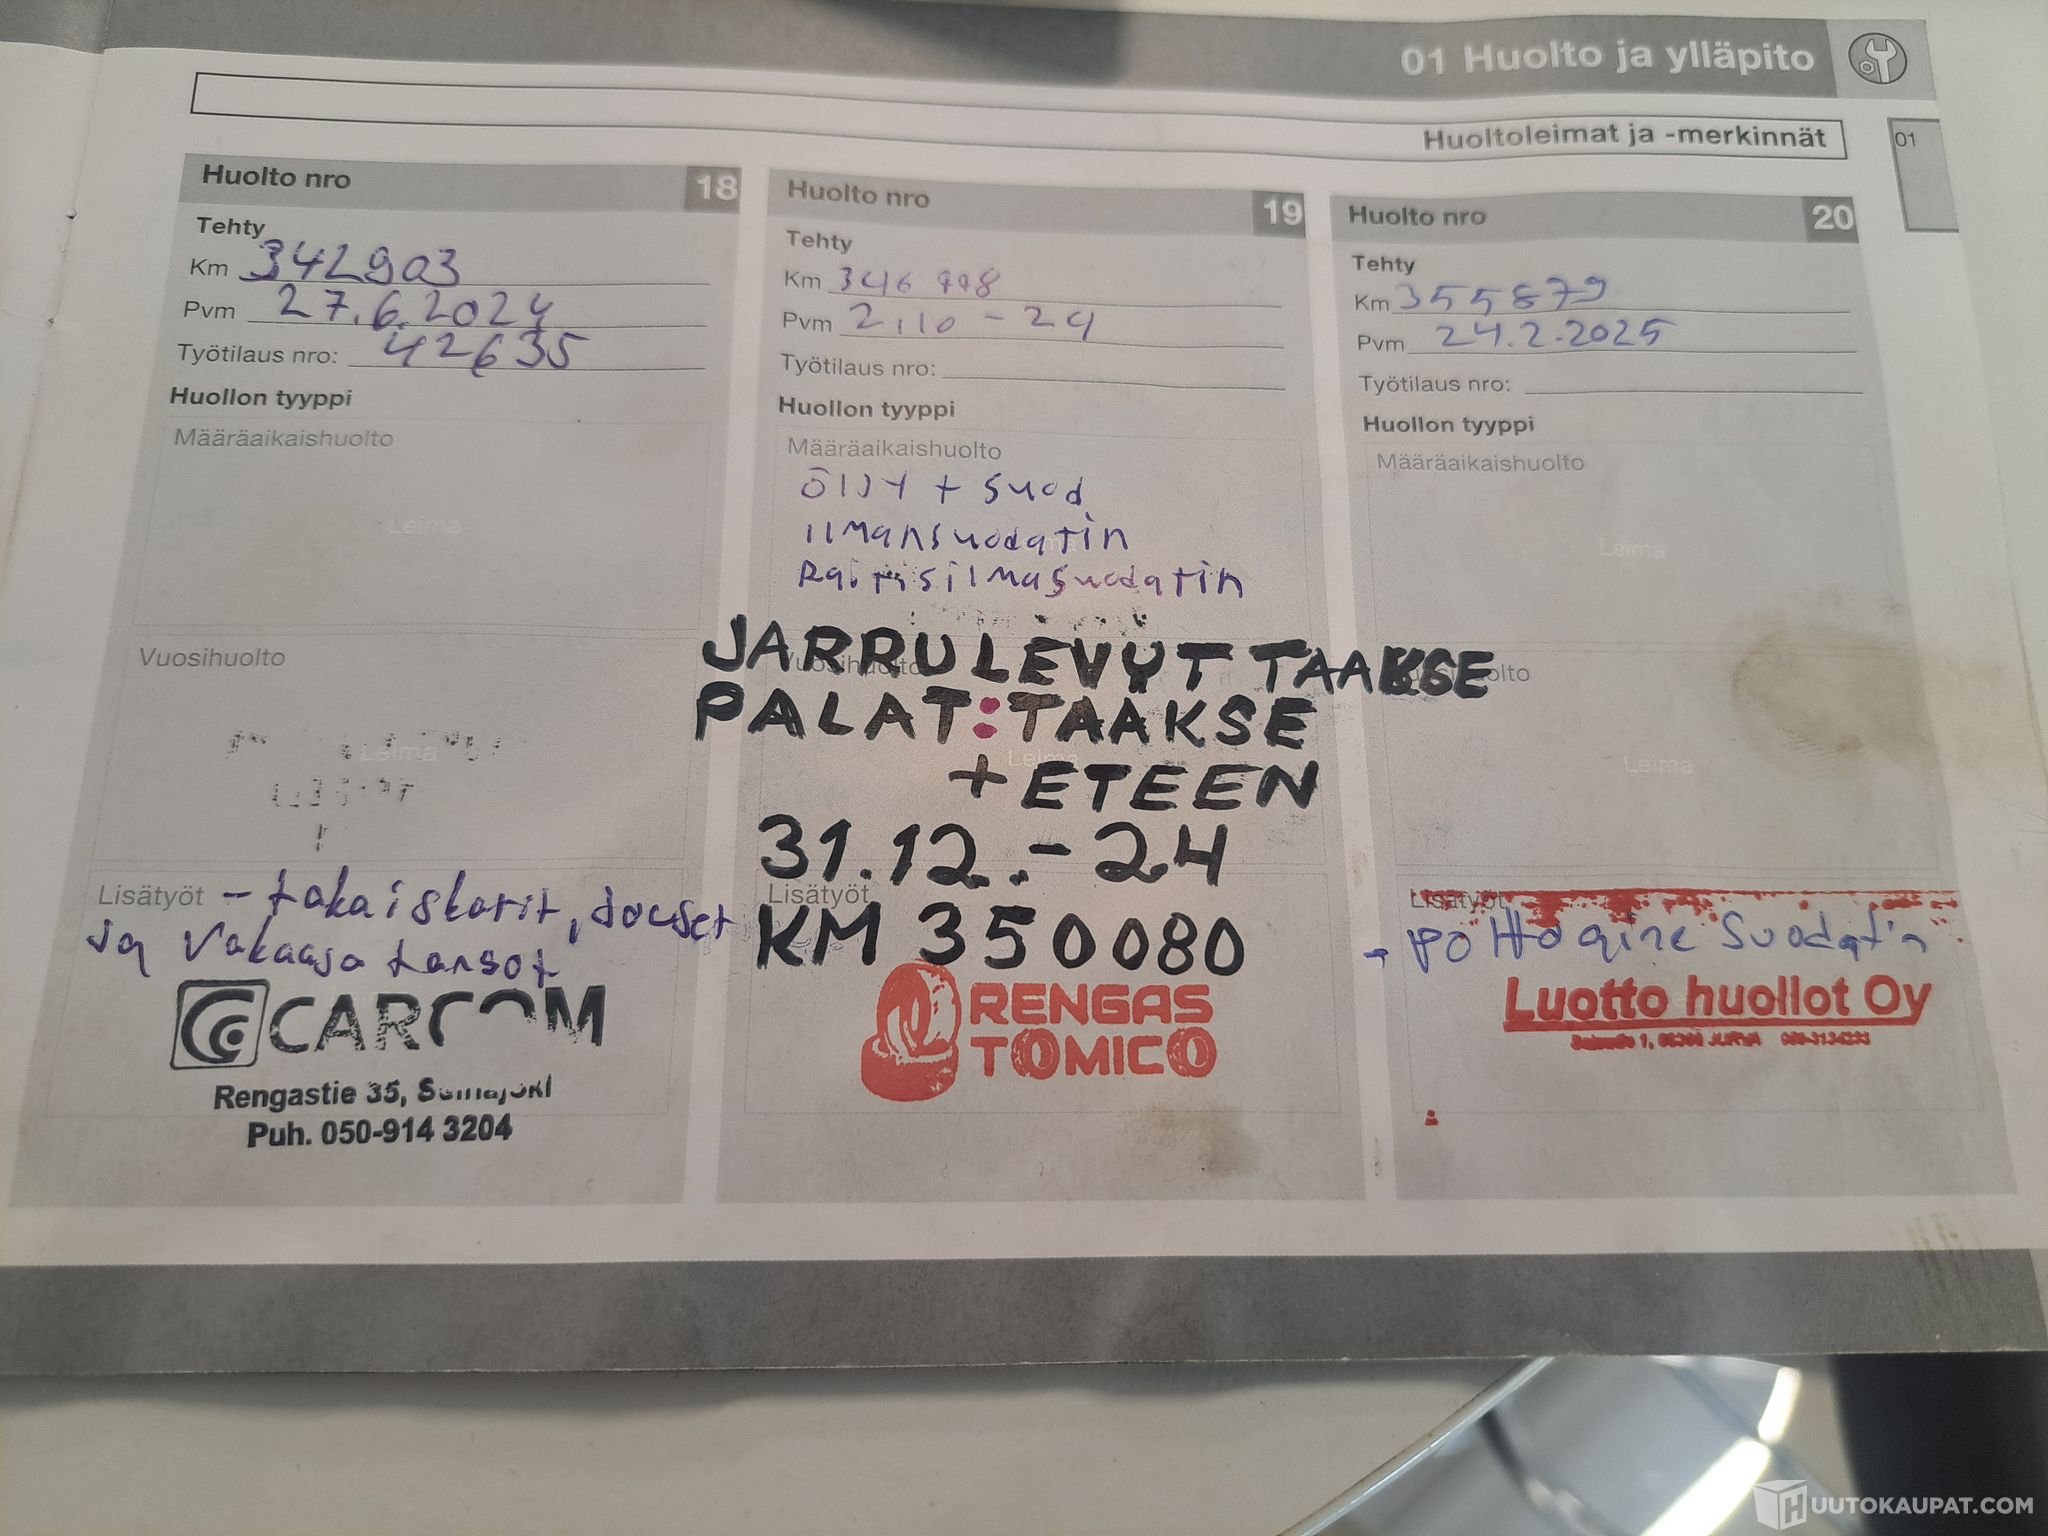 01 Huolto ja ylläpito
Huoltoleimat ja -merkinnät
01
Huolto nro 18
Tehty
Km 342903
Pvm 27.6.2024
Työtilaus nro: 42635
Huollon tyyppi
Määräaikaishuolto
Leima
Vuosihuolto
Leima
Lisätyöt - takaiskarit, jouset
ja vakaaja tangot
CARCOM
Rengastie 35, Seinäjoki
Puh. 050-914 3204
Huolto nro 19
Tehty
Km 346
Pvm 2.10-24
Työtilaus nro:
Huollon tyyppi
Määräaikaishuolto
Öljy + suod
ilmansuodatin
Raitisilmasuodatin
Vuosihuolto
JARRULEVYT TAAKSE
PALAT:TAAKSE
Leima
+ ETEEN
31.12.-24
Lisätyöt
KM 350080
RENGAS
TOMICO
Huolto nro 20
Tehty
Km 355879
Pvm 24.2.2025
Työtilaus nro:
Huollon tyyppi
Määräaikaishuolto
Leima
Leima
Lisätyöt
- polttoaine suodatin
Luotto huollot Oy
JURVA
HUUTOKAUPAT.COM